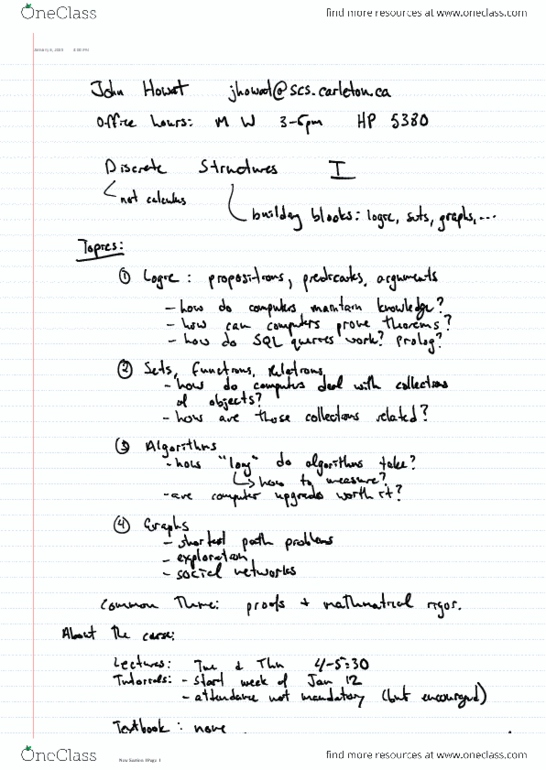 OneClass
find more resources at www.oneclass.com
4:00 PM
John Howat jhowat@scs.carleton.ca
Office hours: M W 3-5pm HP 5380
Discrete Structures I
not calculus
building blocks: logic, sets, graphs,...
Topics:
① Logic: propositions, predicates, arguments
- how do computers maintain knowledge?
- how can computers prove theorems?
- how do SQL queries work? Prolog?
② Sets, Functions, Relations
- how do computers deal with collections
of objects?
- how are those collections related?
③ Algorithms
- how "long" do algorithms take?
↳ how to measure?
- are computer upgrades worth it?
④ Graphs
- shortest path problems
- exploration
- social networks
Common Theme: proofs + mathematical rigor.
About the course:
Lectures: Tue & Thu 4-5:30
Tutorials: - start week of Jan 12
- attendance not mandatory (but encouraged)
Textbook: none
OneClass
find more resources at www.oneclass.com